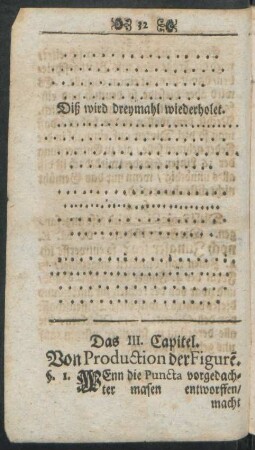 32
Diß wird dreymahl wiederholet.
Das III. Capitel.
Von Production der Figurē.
§. 1. WEnn die Puncta vorgedach-
ter masen entworffen/
macht